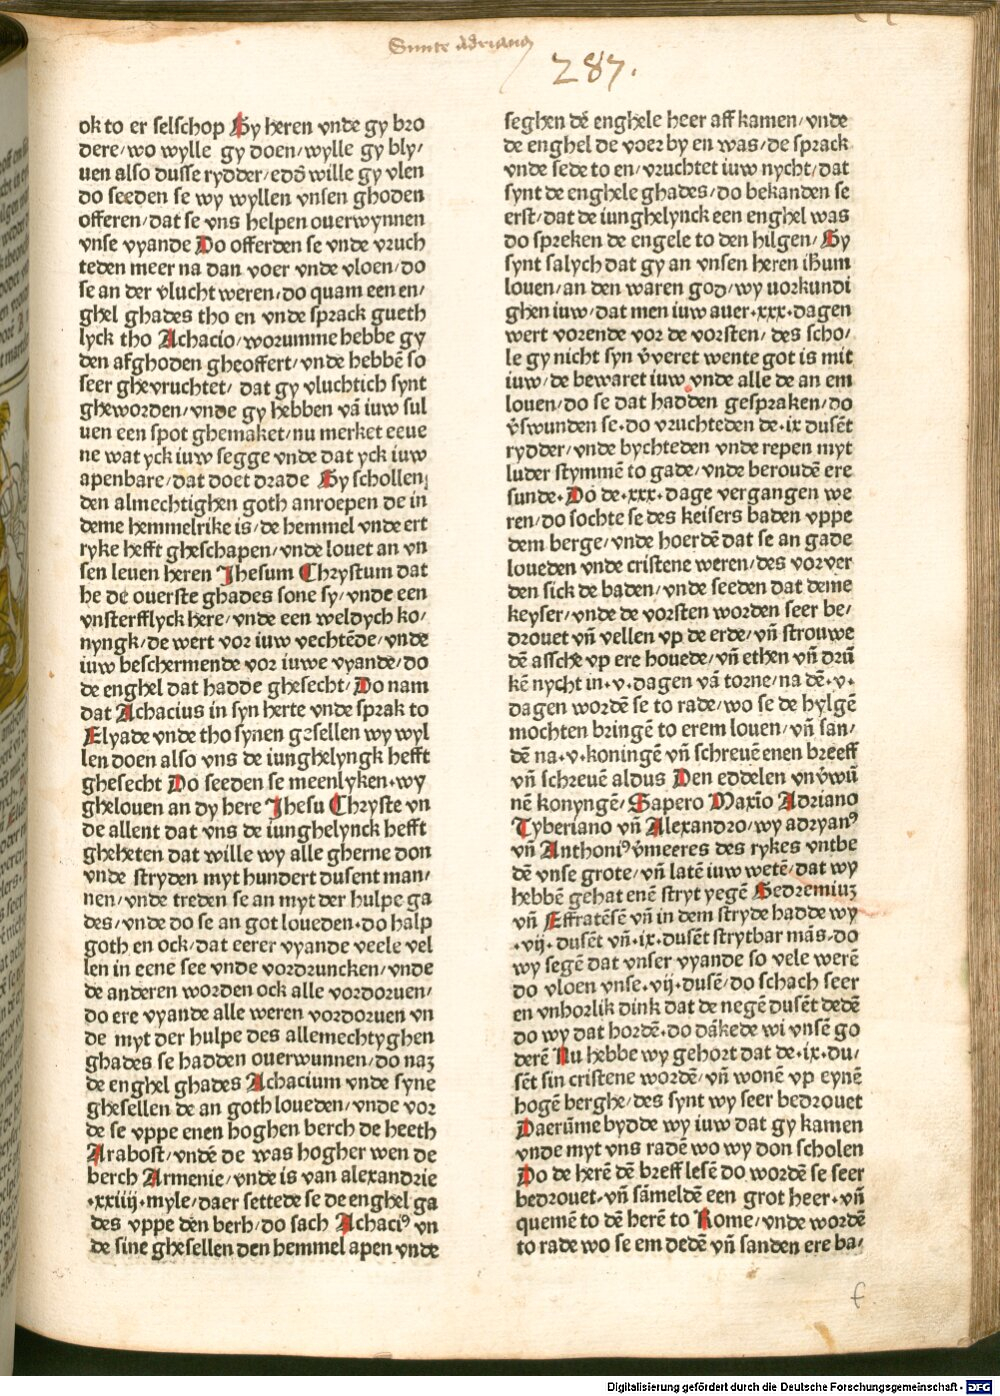 Sunte Adrianus
287.
ok to er selschop Gy heren vnde gy bro
dere/wo wylle gy doen/wylle gy bly/
uen also dusse rydder/edd̄ wille gy vlen
do seeden se wy wyllen vnsen ghoden
offeren/dat se vns helpen ouerwynnen
vnse vyande Do offerden se vnde vruch
teden meer na dan voer vnde vloen/do
se an der vlucht weren/do quam een en/
ghel ghades tho en vnde sprack gueth
lyck tho Achacio/worumme hebbe gy
den afghoden gheoffert/vnde hebbē so
seer ghevruchtet/ dat gy vluchtich synt
gheworden/vnde gy hebben vā iuw sul
uen een spot ghemaket/nu merket eeue
ne wat yck iuw segge vnde dat yck iuw
apenbare/dat doet drade Gy schollen
den almechtighen goth anroepen de in
deme hemmelrike is/de hemmel vnde ert
ryke hefft gheschapen/vnde louet an vn
sen leuen heren Jhesum Chrystum dat
he de ouerste ghades sone sy/vnde een
vnsterfflyck here/vnde een weldych ko/
nyngk/de wert vor iuw vechtēde/vnde
iuw beschermende vor iuwe vyande/do
de enghel dat hadde ghesecht/Do nam
dat Achacius in syn herte vnde sprak to
Elyade vnde tho synen gesellen wy wyl
len doen also vns de iunghelyngk hefft
ghesecht Do seeden se meenlyken·wy
ghelouen an dy here Jhesu Chryste vn
de allent dat vns de iunghelynck hefft
gheheten dat wille wy alle gherne don
vnde stryden myt hundert dusent man/
nen/vnde treden se an myt der hulpe ga
des/vnde do se an got loueden·do halp
goth en ock/dat eerer vyande veele vel
len in eene see vnde vordruncken/vnde
de anderen worden ock alle vordoruen/
do ere vyande alle weren vordoruen vn
de myt der hulpe des allemechtyghen
ghades se hadden ouerwunnen/do naz
de enghel ghades Achacium vnde syne
ghesellen de an goth loueden/vnde vor
de se vppe enen hoghen berch de heeth
Arabost/vndē de was hogher wen de
berch Armenie/vnde is van alexandrie
·xxiiij·myle/daer settede se de enghel ga
des vppe den berh/do sach Achaciꝰ vn
de sine ghesellen den hemmel apen vnde
seghen dē enghele heer aff kamen/vnde
de enghel de voer by en was/de sprack
vnde sede to en/vruchtet iuw nycht/dat
synt de enghele ghades/do bekanden se
erst/dat de iunghelynck een enghel was
do spreken de engele to den hilgen/Gy
synt salych dat gy an vnsen heren ihūm
louen/an den waren god/wy uorkundi
ghen iuw/dat men iuw auer·xxx·dagen
wert vorende vor de vorsten/des scho/
le gy nicht syn v̄veret wente got is mit
iuw/de bewaret iuw vnde alle de an em
louen/do se dat hadden gespraken/do
v̄swunden se·do vruchteden de·ix dusēt
rydder/vnde bychteden vnde repen myt
luder stymmē to gade/vnde berouden ere
sunde·Do de·xxx·dage vergangen we
ren/do sochte se des keisers baden vppe
dem berge/vnde hoerdē dat se an gade
loueden vnde cristene weren/des vorver
den sick de baden/vnde seeden dat deme
keyser/vnde de vorsten worden seer be/
drouet vn̄ vellen vp de erde/vn̄ strouwe
dē assche vp ere houede/vn̄ ethen vn̄ drū
kē nycht in·v·dagen vā torne/na dē·v·
dagen wordē se to rade/wo se de hylgē
mochten bringē to erem louen/vn̄ san/
dē na·v·koningē vn̄ schreuē enen breeff
vn̄ schreuē aldus Den eddelen vn̄ v̄wū
nē konyngē/Sapero Maxīo Adriano
Tyberiano vn̄ Alexandro/wy adryanꝰ
vn̄ Anthoniꝰ v̄meeres des rykes vntbe
dē vnse grote/vn̄ latē iuw wetē/dat wy
hebbē gehat enē stryt yegē Gedremiuz
vn̄ Effratēsē vn̄ in dem stryde hadde wy
·vij·dusēt vn̄·ix·dusēt strytbar mās·do
wy segē dat vnser vyande so vele werē
do vloen vnse·vij·dusē/do schach seer
en vnhorlik dink dat de negē dusēt dedē
do wy dat hordē·do dākede wi vnsē go
derē Nu hebbe wy gehort dat de·ix·du/
sēt sin cristene wordē/vn̄ wonē vp eynē
hogē berghe/des synt wy seer bedrouet
Daerūme bydde wy iuw dat gy kamen
vnde myt vns radē wo wy don scholen
Do de herē dē breff lesē do wordē se seer
bedrouet·vn̄ sāmeldē een grot heer·vn̄
quemē to dē herē to Rome/vnde wordē
to rade wo se em dedē vn̄ sanden ere ba/
f
Digitalisierung gefördert durch die Deutsche Forschungsgemeinschaft - DFG